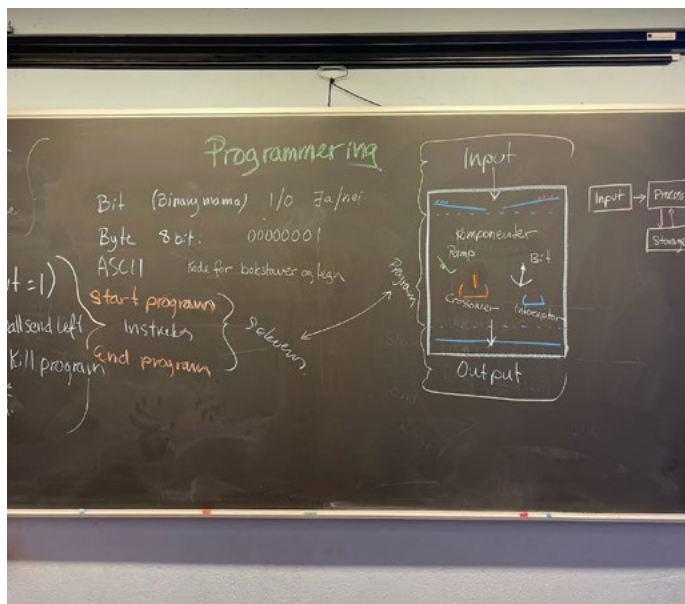 Programmering
Bit (Binary mama) 1/0 Ja/nei
Byte 8bit. 00000001
ASCII Kode for bokstaver og tegn
Start program
End program
t=1)
all send left
Kill program
Program
Input
Komponenter
Ramp
Bit
Crossover
Interceptor
Output
Input
Process
Storage